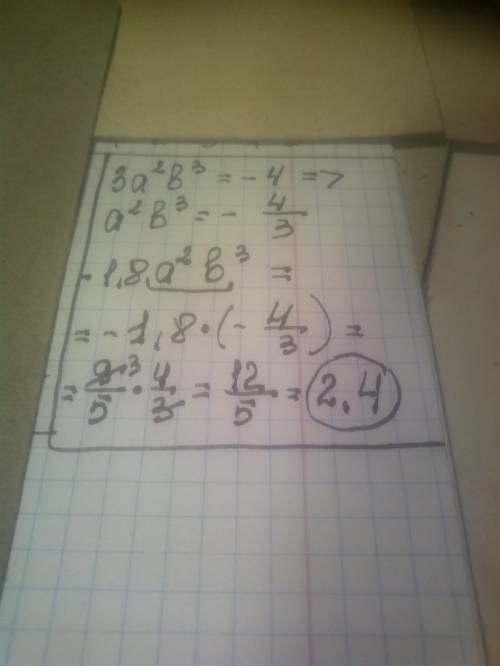 3a²b³ = - 4 =>
a²b³ = - 4/3
- 1,8 a²b³ =
= - 1,8 · (- 4/3) =
= 9/5 ³ · 4/3 = 12/5 = 2,4